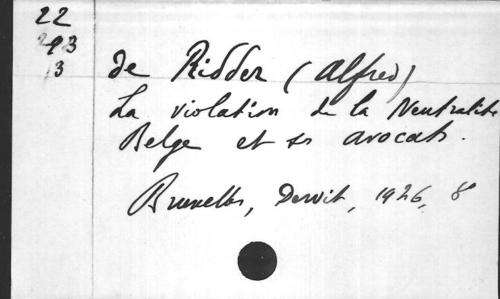 22
293
13
de Ridder (Alfred)
La violation de la Neutralité
Belge et ses avocats.
Bruxelles, Dewit, 1926, 8°